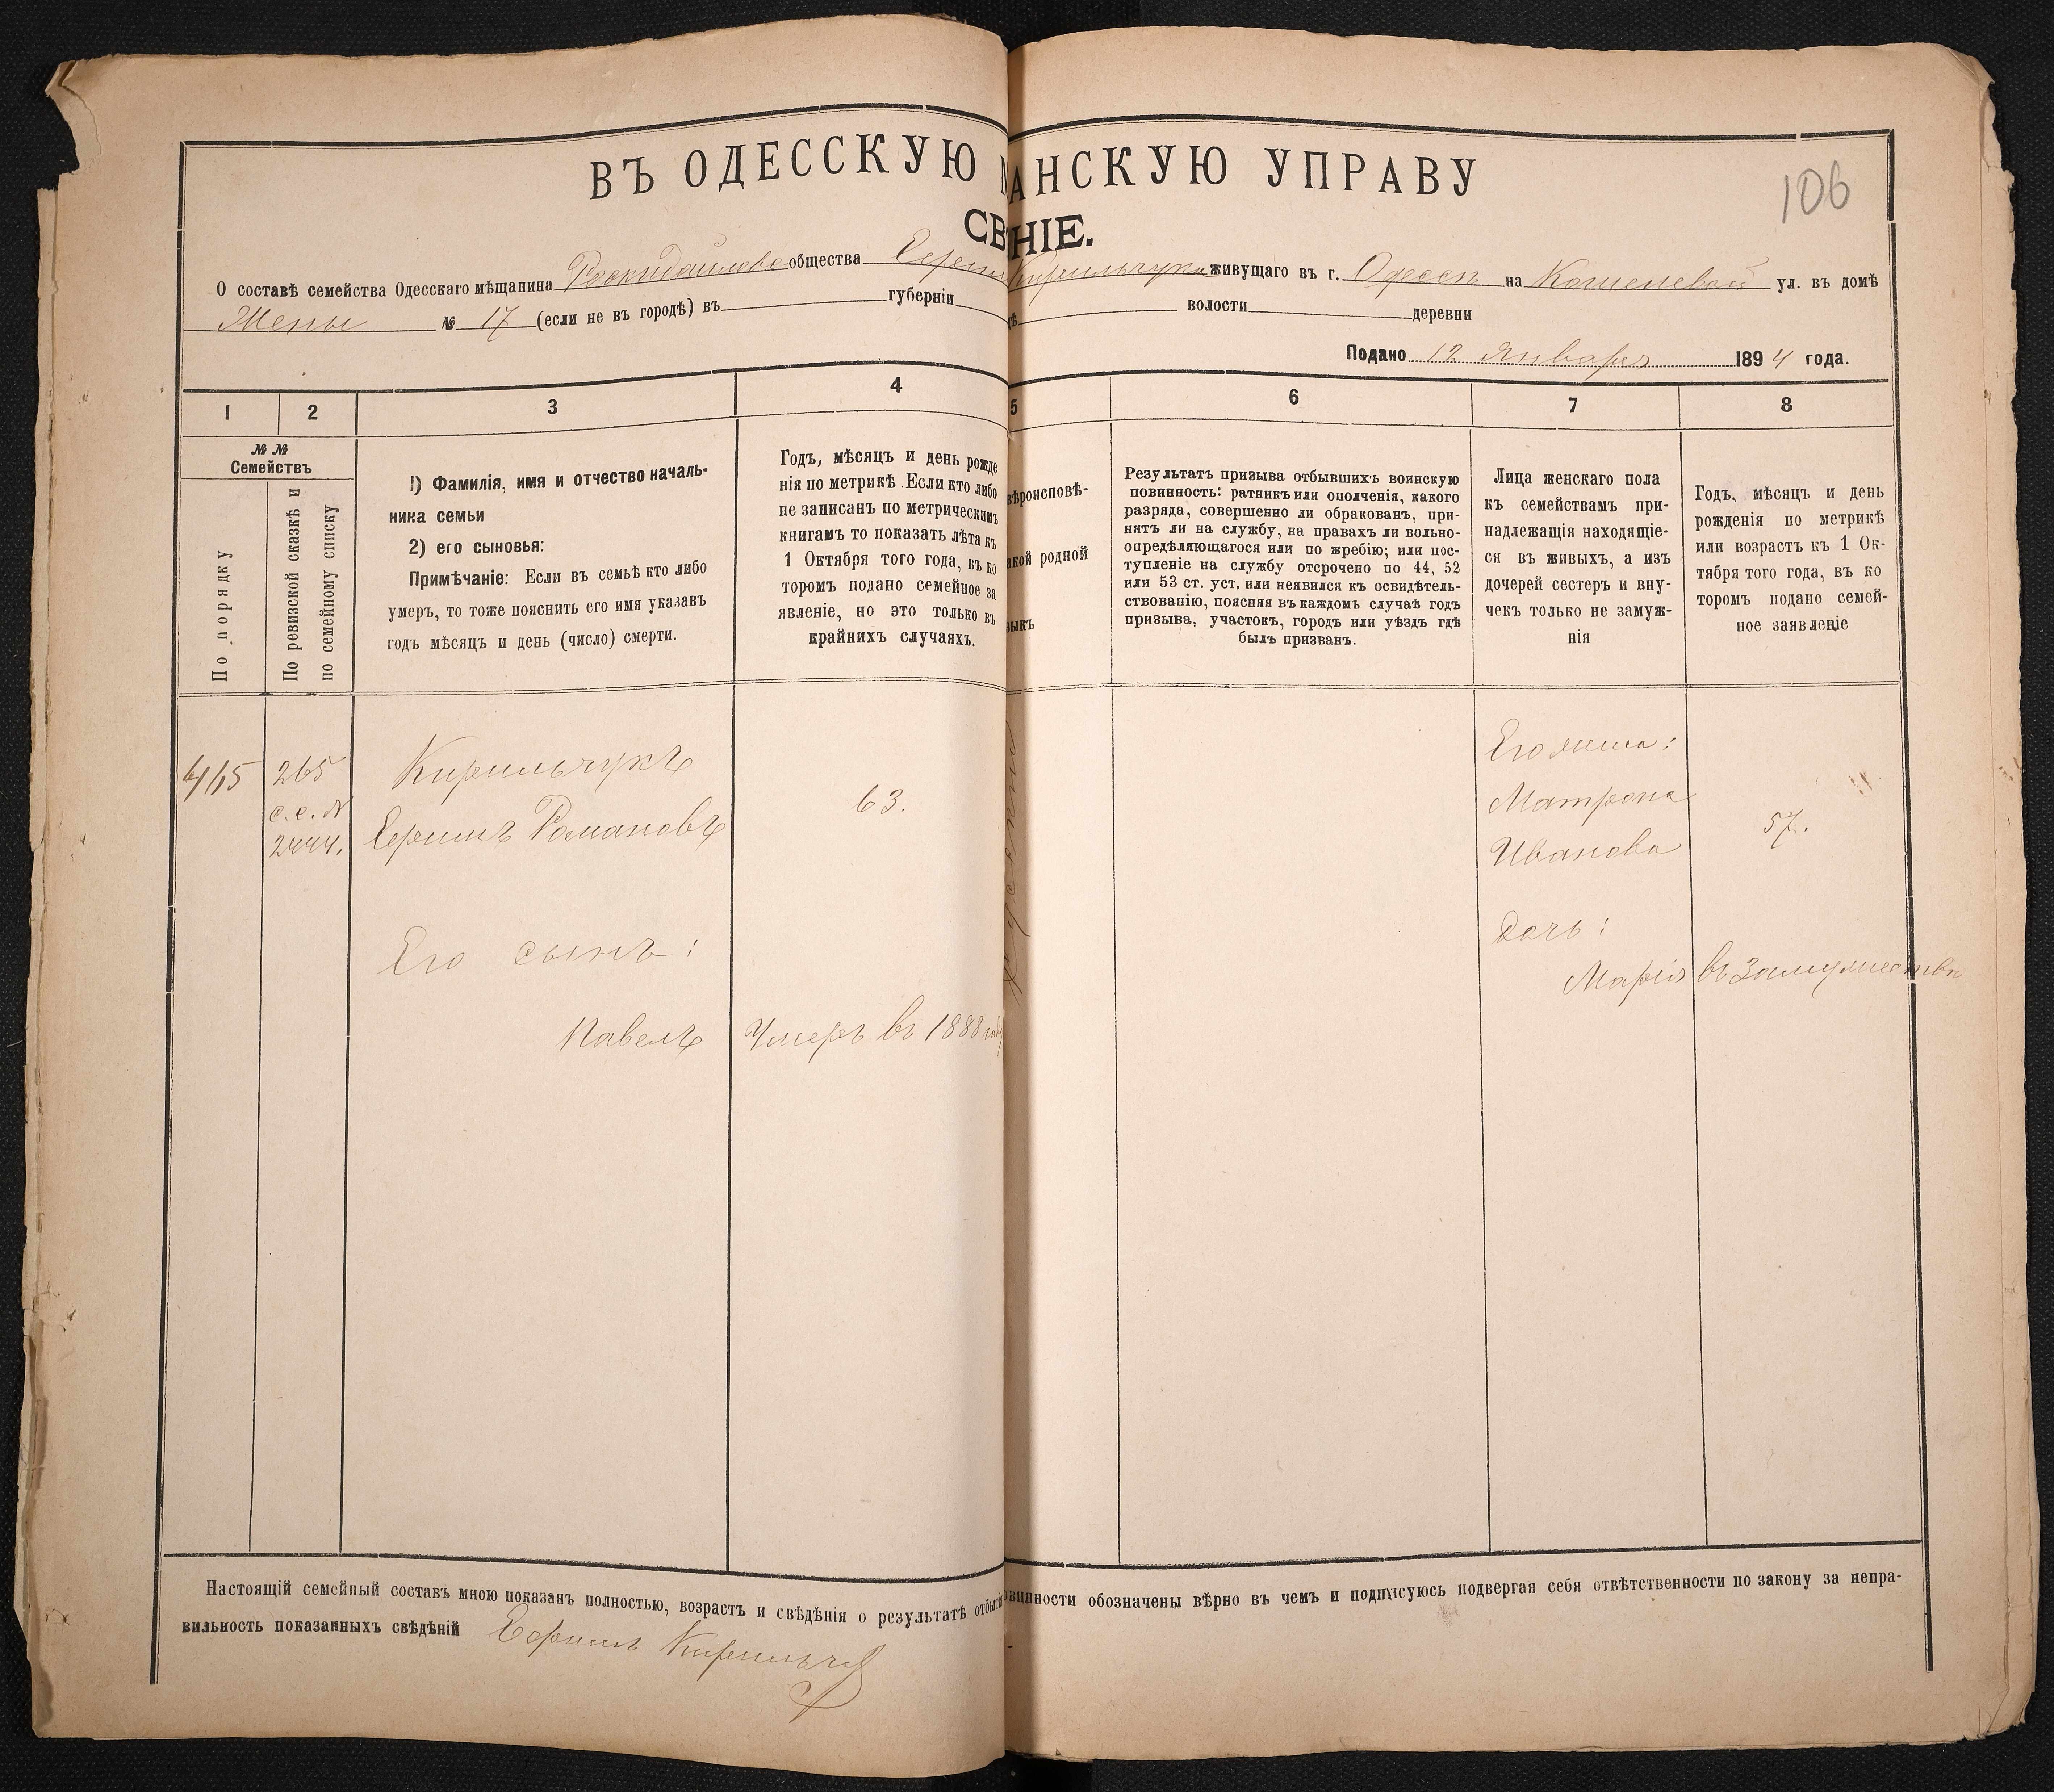 ВЪ ОДЕССКУЮ М АНСКУЮ УПРАВУ
106
СВ НІЕ.
О составѣ семейства Одесскаго мѣщанина Роскидайлово общества Кирильчука живущаго въ г. Одессѣ на ул. въ домѣ
Жены № 17 (если не въ городѣ) въ губерніи волости деревни
Подано 12 Января 1894 года.
1 2 3 4 5 6 7 8
№ №
Семействъ
По порядку
По ревизской сказкѣ и
по семейному списку
1) Фамилія, имя и отчество началь-
ника семьи
2) его сыновья:
Примѣчаніе: Если въ семьѣ кто либо
умеръ, то тоже пояснить его имя указавъ
годъ мѣсяцъ и день (число) смерти.
Годъ, мѣсяцъ и день рожде
нія по метрикѣ. Если кто либо
не записанъ по метрическимъ
книгамъ то показать лѣта къ
1 Октября того года, въ ко
торомъ подано семейное за
явленіе, но это только въ
крайнихъ случаяхъ.
вѣроисповѣ-
акой родной
зыкъ
Результатъ призыва отбывшихъ воинскую
повинность: ратникъ или ополченія, какого
разряда, совершенно ли обракованъ, при-
нятъ ли на службу, на правахъ ли вольно-
опредѣляющагося или по жребію; или пос-
тупленіе на службу отсрочено по 44, 52
или 53 ст. уст. или неявился къ освидѣтель-
ствованію, поясняя въ каждомъ случаѣ годъ
призыва, участокъ, городъ или уѣздъ гдѣ
былъ призванъ.
Лица женскаго пола
къ семействамъ при-
надлежащія находящіе-
ся въ живыхъ, а изъ
дочерей сестеръ и вну-
чекъ только не замуж-
нія
Годъ, мѣсяцъ и день
рожденія по метрикѣ
или возрастъ къ 1 Ок-
тября того года, въ ко
торомъ подано семей-
ное заявленіе
265
с. с. №
2444.
Кирильчукъ
Романовъ
63.
Его сынъ:
Павелъ
Умеръ въ 1888 году
Его жена:
Матрона
Иванова
57.
дочь:
Марія въ замужествѣ
Настоящій семейный составъ мною показанъ полностью, возрастъ и свѣдѣнія о результатѣ отбытія винности обозначены вѣрно въ чемъ и подписуюсь подвергая себя отвѣтственности по закону за непра-
вильность показанныхъ свѣдѣній